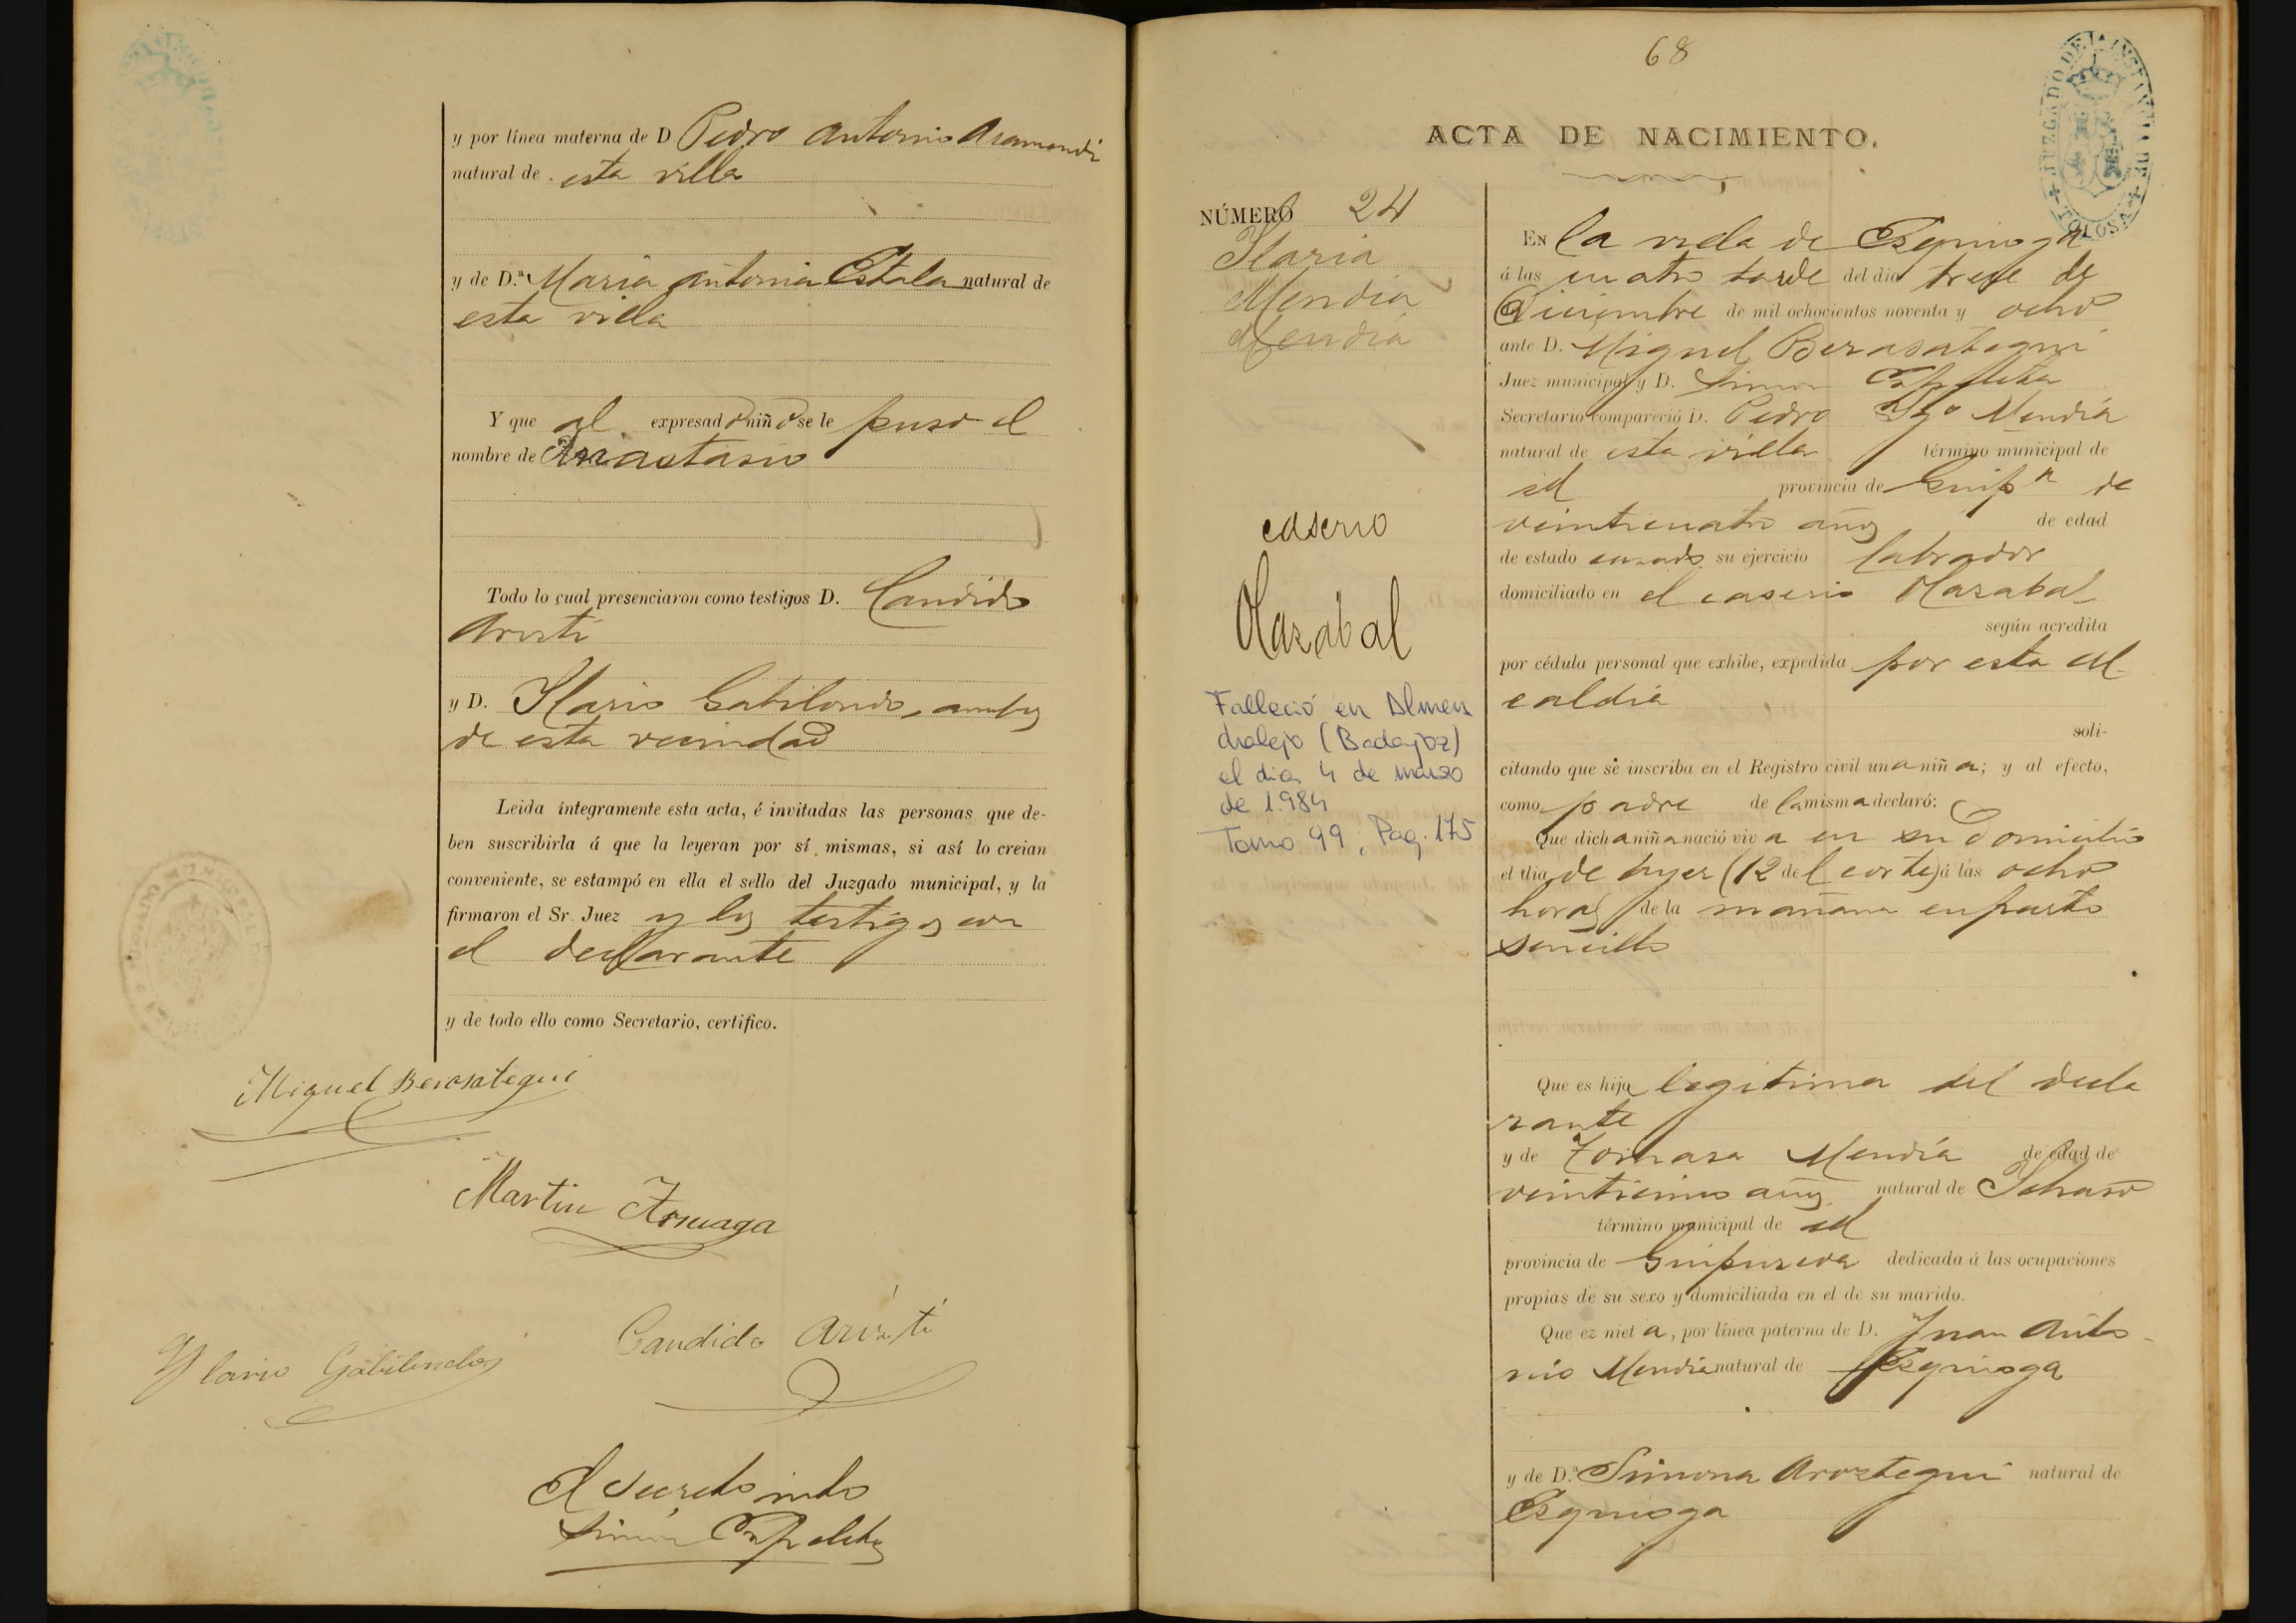 y por línea materna de D Pedro Antonio Aramendi
natural de esta villa
y de D.ª Maria Antonia Estala natural de
esta villa
Y que al expresado niño se le puso el
nombre de Anastasio
Todo lo cual presenciaron como testigos D. Candido
Aristi
y D. Ylario Gabilondo, ambos
de esta vecindad
Leida íntegramente esta acta, é invitadas las personas que de-
ben suscribirla á que la leyeran por sí mismas, si así lo creian
conveniente, se estampó en ella el sello del Juzgado municipal, y la
firmaron el Sr. Juez y los testigos con
el declarante
y de todo ello como Secretario, certifico.
Miguel Berasategui
Martin Aramaga
Candido Aristi
Ylario Gabilondo
El Secreto
Simón
68
ACTA DE NACIMIENTO.
JUZGADO DE 1.ª INSTANCIA DE TOLOSA
NÚMERO 24
Ylaria
Mendia
Mendia
caserio
Olazabal
Falleció en Almen
dralejo (Badajoz)
el dia 4 de marzo
de 1.984
Tomo 99, Pag. 175
En la villa de Ezquioga
á las cuatro tarde del dia trece de
Diciembre de mil ochocientos noventa y ocho
ante D. Miguel Berasategui
Juez municipal y D. Simon
Secretario compareció D. Pedro Ygo Mendia
natural de esta villa término municipal de
id provincia de Guipª de
veinticuatro años de edad
de estado casado su ejercicio labrador
domiciliado en el caserio Olazabal
según acredita
por cédula personal que exhibe, expedida por esta Al
caldia
soli-
citando que se inscriba en el Registro civil una niña; y al efecto,
como padre de la misma declaró:
Que dicha niña nació viva en su domicilio
el dia de ayer (12 del corte) á las ocho
horas de la mañana en parto
sencillo
Que es hija legitima del decla
rante
y de Tomasa Mendía de edad de
veinticinco años natural de Ichaso
término municipal de id
provincia de Guipuzcoa dedicada á las ocupaciones
propias de su sexo y domiciliada en el de su marido.
Que ez nieta, por línea paterna de D. Juan Anto-
nio Mendia natural de Ezquioga
y de D.ª Simona Aroztegui natural de
Ezquioga